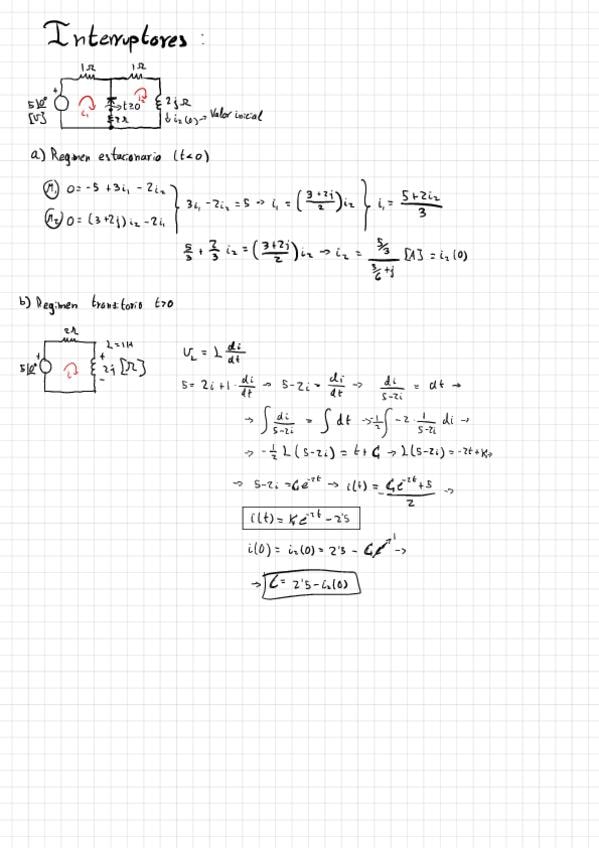 Interruptores:
1Ω 1Ω
5|0° [V] + i₁ t≥0 2Ω i₂ 2j Ω
↓ i₂(0) → Valor inicial
a) Regimen estacionario (t<0)
(M₁) 0 = -5 + 3i₁ - 2i₂
(M₂) 0 = (3+2j) i₂ - 2i₁
3i₁ - 2i₂ = 5 → i₁ = (3+2j / 2) i₂ } i₁ = 5+2i₂ / 3
5/3 + 2/3 i₂ = (3+2j / 2) i₂ → i₂ = 5/3 / 5/6 + j [A] = i₂(0)
b) Regimen transitorio t>0
2Ω L=1H
5|0° + i₂ + 2j [Ω] -
U_L = L di/dt
5 = 2i + 1 · di/dt → 5-2i = di/dt → di / 5-2i = dt →
→ ∫ di / 5-2i = ∫ dt → -½ ∫ -2 · 1 / 5-2i di →
→ -½ L(5-2i) = t + C → L(5-2i) = -2t + K →
→ 5-2i = Ce⁻²ᵗ → i(t) = - Ce⁻²ᵗ + 5 / 2 →
i(t) = Ke⁻²ᵗ - 2'5
i(0) = i₂(0) = 2'5 - C 1 →
→ C = 2'5 - i₂(0)